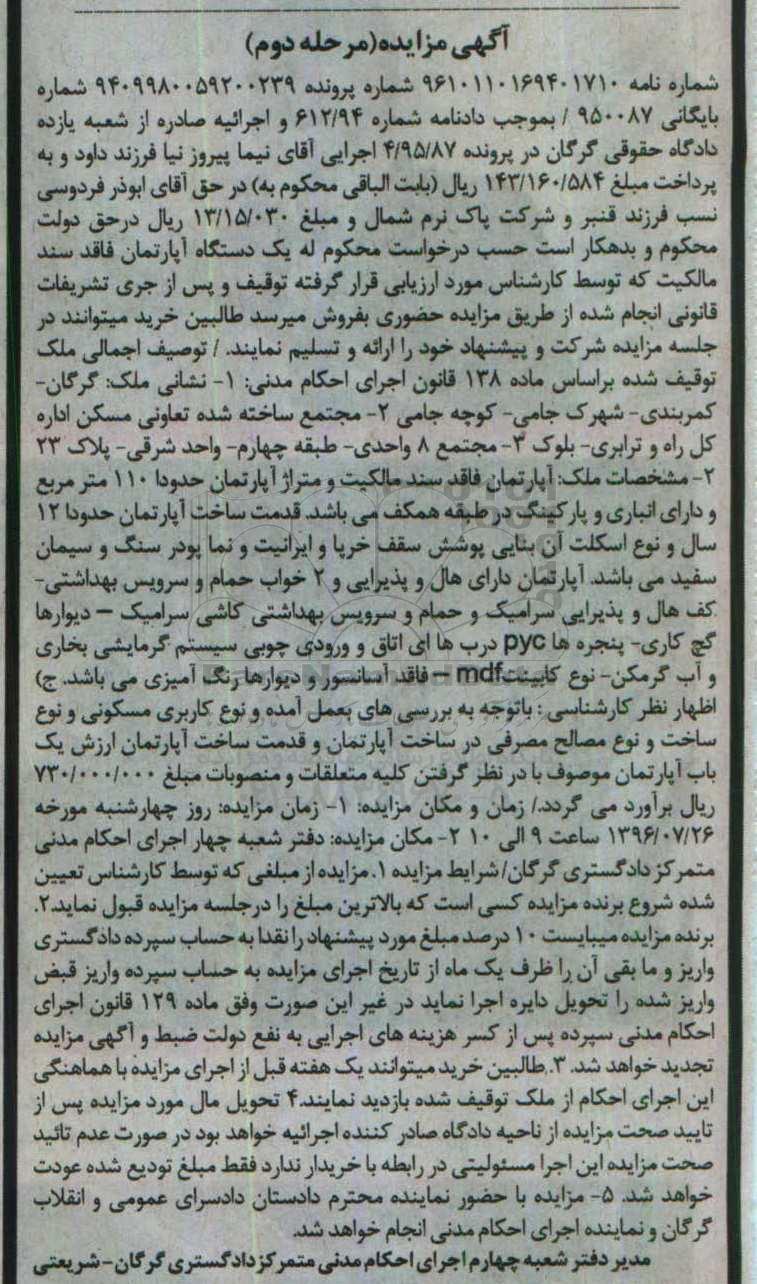 آگهی مزایده(مرحله دوم)
شماره نامه ۹۶۱۰۱۱۰۱۶۹۴۰۱۷۱۰ شماره پرونده ۹۴۰۹۹۸۰۰۵۹۲۰۰۲۳۹ شماره
بایگانی ۹۵۰۰۸۷ / بموجب دادنامه شماره ۶۱۲/۹۴ و اجرائیه صادره از شعبه یازده
دادگاه حقوقی گرگان در پرونده ۴/۹۵/۸۷ اجرایی آقای نیما پیروز نیا فرزند داود و به
پرداخت مبلغ ۱۴۳/۱۶۰/۵۸۴ ریال (بابت الباقی محکوم به) در حق آقای ابوذر فردوسی
نسب فرزند قنبر و شرکت پاک نرم شمال و مبلغ ۱۳/۱۵/۰۳۰ ریال درحق دولت
محکوم و بدهکار است حسب درخواست محکوم له یک دستگاه آپارتمان فاقد سند
مالکیت که توسط کارشناس مورد ارزیابی قرار گرفته توقیف و پس از جری تشریفات
قانونی انجام شده از طریق مزایده حضوری بفروش میرسد طالبین خرید میتوانند در
جلسه مزایده شرکت و پیشنهاد خود را ارائه و تسلیم نمایند. / توصیف اجمالی ملک
توقیف شده براساس ماده ۱۳۸ قانون اجرای احکام مدنی: ۱- نشانی ملک: گرگان-
کمربندی- شهرک جامی- کوچه جامی ۲- مجتمع ساخته شده تعاونی مسکن اداره
کل راه و ترابری- بلوک ۳- مجتمع ۸ واحدی- طبقه چهارم- واحد شرقی- پلاک ۲۳
۲- مشخصات ملک: آپارتمان فاقد سند مالکیت و متراژ آپارتمان حدودا ۱۱۰ متر مربع
و دارای انباری و پارکینگ در طبقه همکف می باشد. قدمت ساخت آپارتمان حدودا ۱۲
سال و نوع اسکلت آن بنایی پوشش سقف خرپا و ایرانیت و نما پودر سنگ و سیمان
سفید می باشد. آپارتمان دارای هال و پذیرایی و ۲ خواب حمام و سرویس بهداشتی-
کف هال و پذیرایی سرامیک و حمام و سرویس بهداشتی کاشی سرامیک – دیوارها
گچ کاری- پنجره ها pyc درب ها ای اتاق و ورودی چوبی سیستم گرمایشی بخاری
و آب گرمکن- نوع کابینتmdf – فاقد آسانسور و دیوارها رنگ آمیزی می باشد. ج)
اظهار نظر کارشناسی : باتوجه به بررسی های بعمل آمده و نوع کاربری مسکونی و نوع
ساخت و نوع مصالح مصرفی در ساخت آپارتمان و قدمت ساخت آپارتمان ارزش یک
باب آپارتمان موصوف با در نظر گرفتن کلیه متعلقات و منصوبات مبلغ ۷۳۰/۰۰۰/۰۰۰
ریال برآورد می گردد./ زمان و مکان مزایده: ۱- زمان مزایده: روز چهارشنبه مورخه
۱۳۹۶/۰۷/۲۶ ساعت ۹ الی ۱۰ ۲- مکان مزایده: دفتر شعبه چهار اجرای احکام مدنی
متمرکز دادگستری گرگان/ شرایط مزایده ۱. مزایده از مبلغی که توسط کارشناس تعیین
شده شروع برنده مزایده کسی است که بالاترین مبلغ را درجلسه مزایده قبول نماید.۲.
برنده مزایده میبایست ۱۰ درصد مبلغ مورد پیشنهاد را نقدا به حساب سپرده دادگستری
واریز و ما بقی آن را ظرف یک ماه از تاریخ اجرای مزایده به حساب سپرده واریز قبض
واریز شده را تحویل دایره اجرا نماید در غیر این صورت وفق ماده ۱۲۹ قانون اجرای
احکام مدنی سپرده پس از کسر هزینه های اجرایی به نفع دولت ضبط و آگهی مزایده
تجدید خواهد شد. ۳. طالبین خرید میتوانند یک هفته قبل از اجرای مزایده با هماهنگی
این اجرای احکام از ملک توقیف شده بازدید نمایند.۴ تحویل مال مورد مزایده پس از
تایید صحت مزایده از ناحیه دادگاه صادر کننده اجرائیه خواهد بود در صورت عدم تائید
صحت مزایده این اجرا مسئولیتی در رابطه با خریدار ندارد فقط مبلغ تودیع شده عودت
خواهد شد. ۵- مزایده با حضور نماینده محترم دادستان دادسرای عمومی و انقلاب
گرگان و نماینده اجرای احکام مدنی انجام خواهد شد.
مدیر دفتر شعبه چهارم اجرای احکام مدنی متمرکز دادگستری گرگان-شریعتی